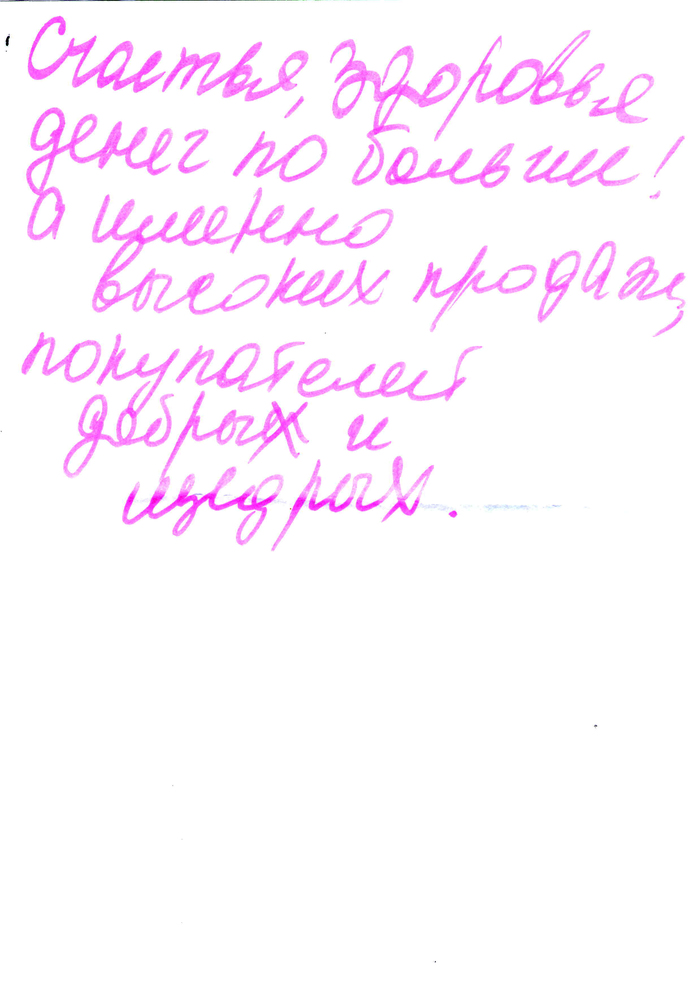 Счастья, здоровья
денег по больше!
а именно
высоких продаж,
покупателей
добрых и
щедрых.